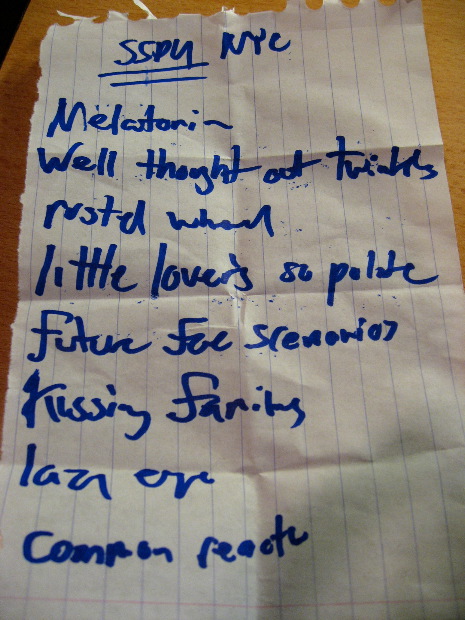 SSPU NYC
Melatonin
Well thought out twinkles
rustd wheel
little lover's so polite
future foe scenarios
kissing families
lazy eye
Common reactr